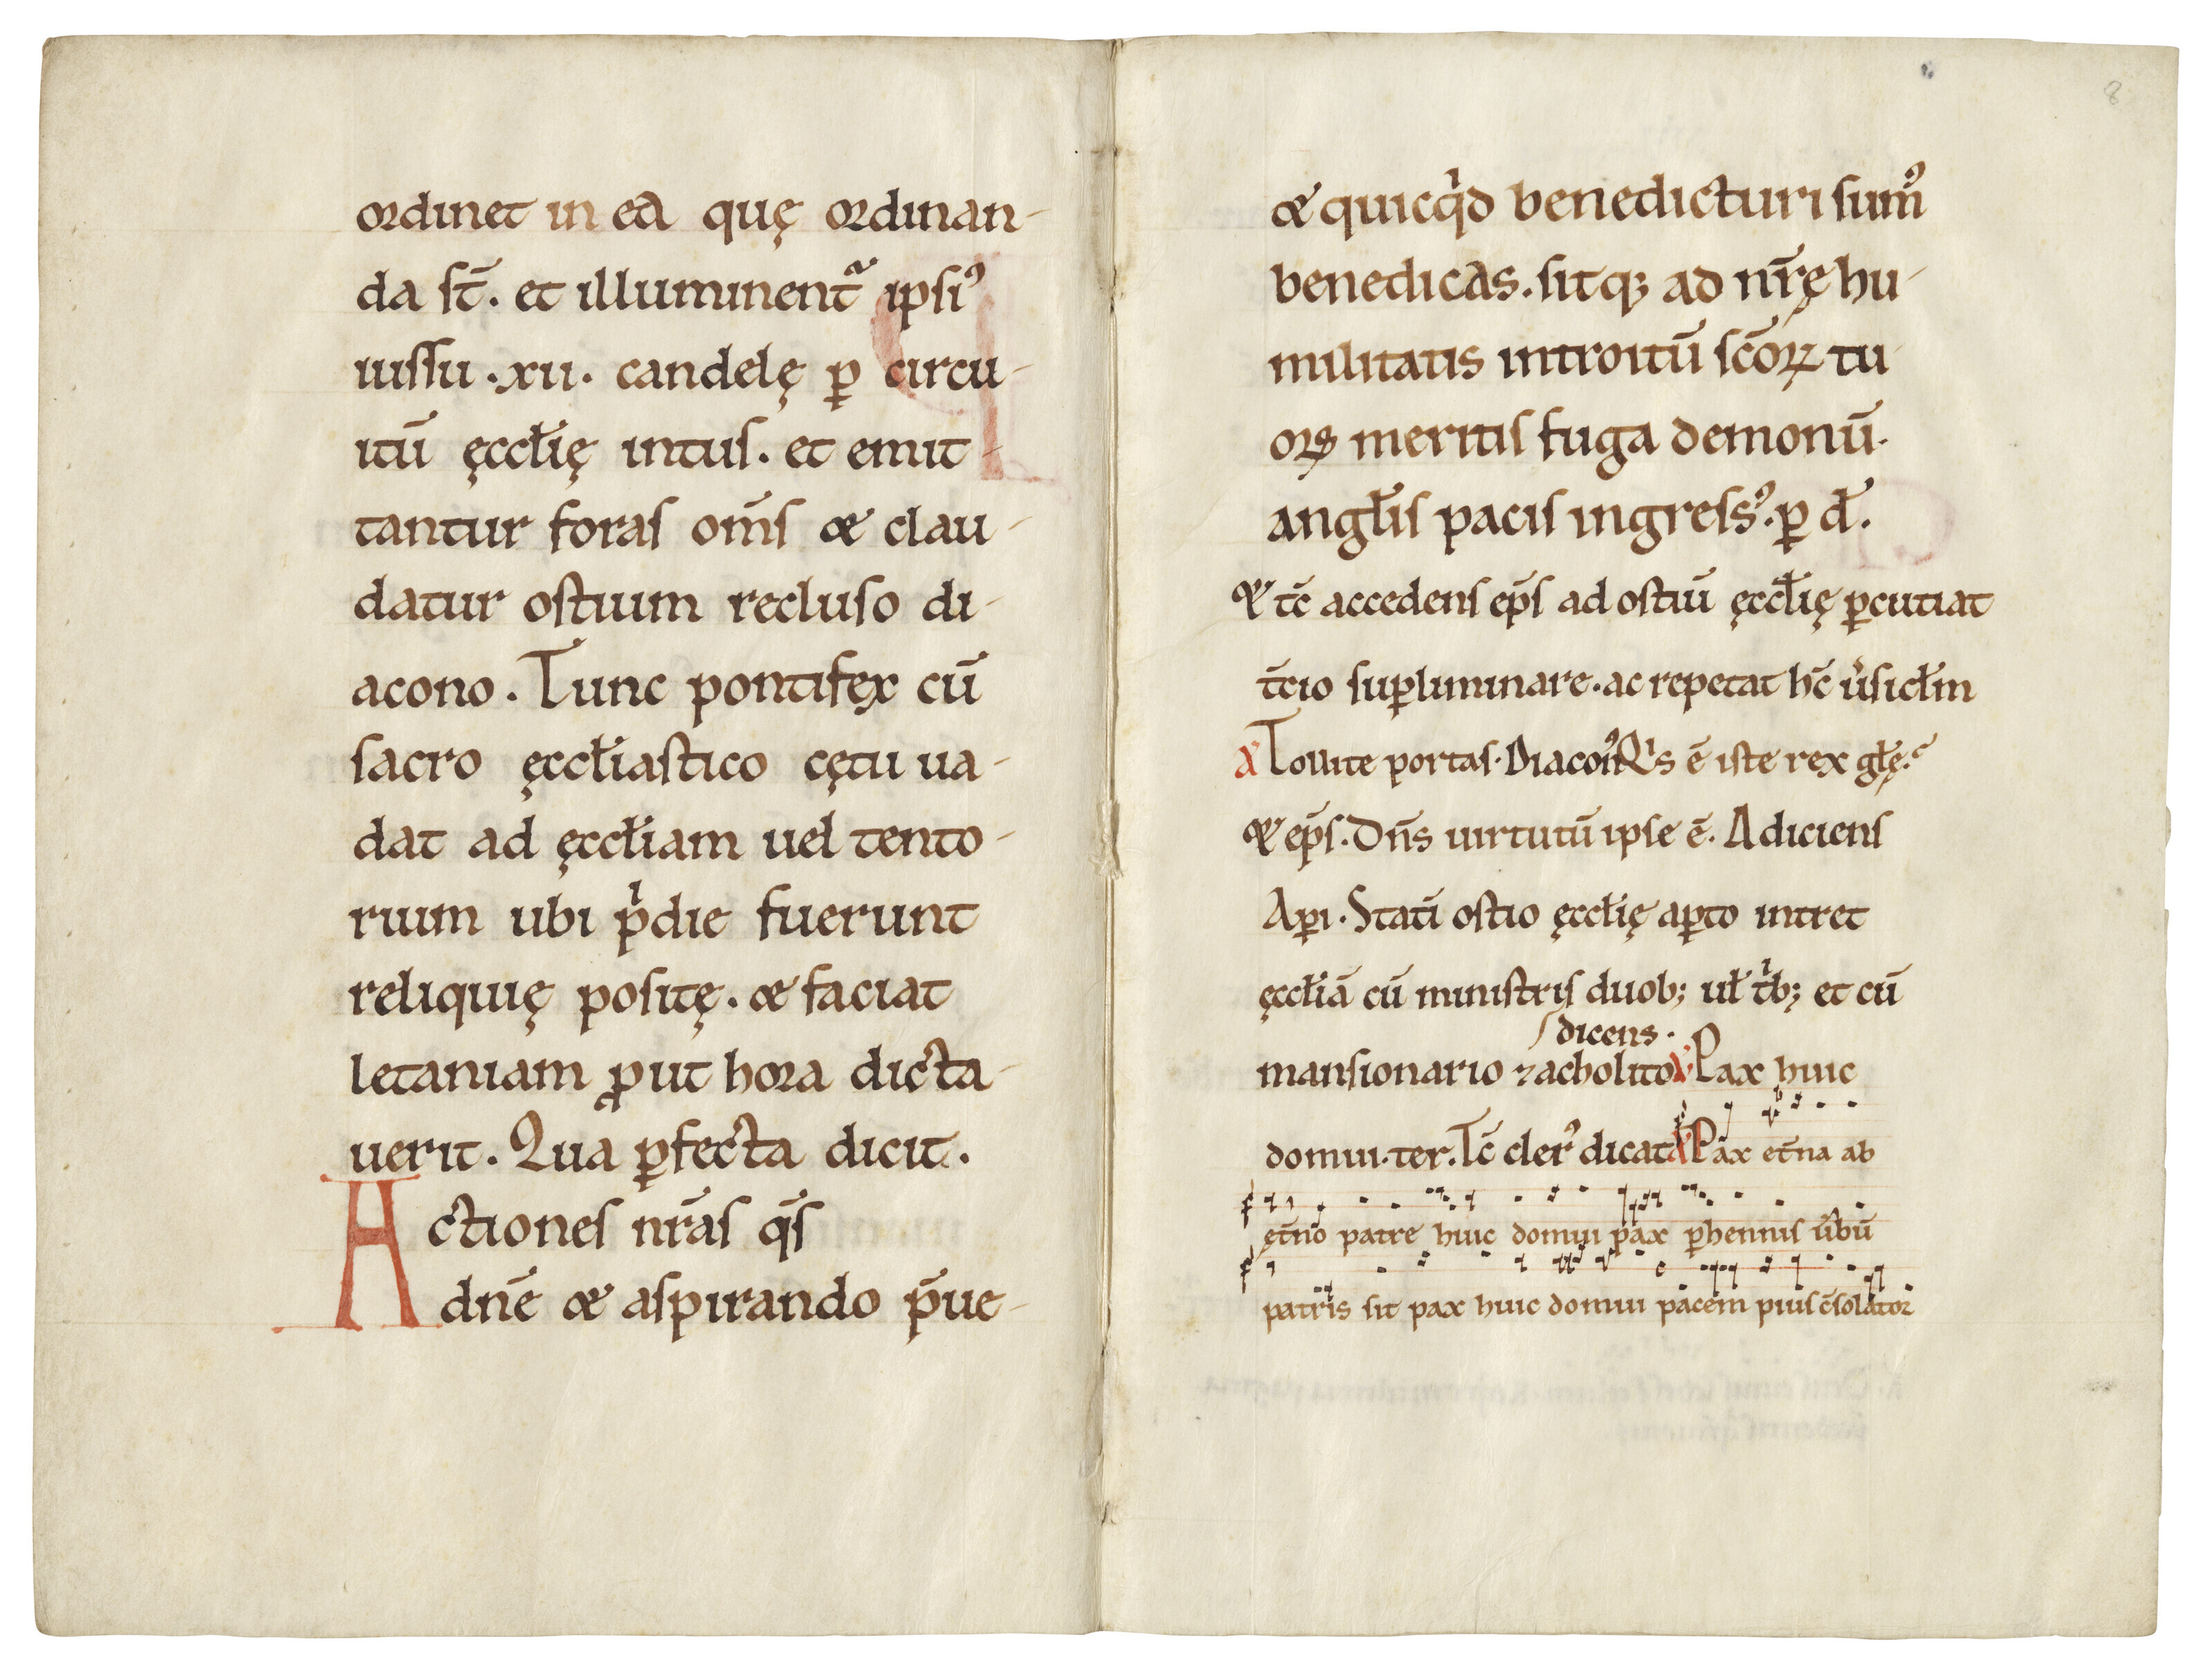 ordinet in eā quę ordinan-
da st̄. et illuminentᷓ ipsiꝰ
iussu .xii. candelę ꝑ circu-
itū ęccƚię intus. et emit-
tantur foras om̄s & clau-
datur ostium recluso di-
acono. Tunc pontifex cū
sacro ęccƚiastico cętu ua-
dat ad ęccƚiam uel tento-
rium ubi pͥdie fuerunt
reliquię positę. & faciat
letaniam ꝓut hora dicta-
uerit. Qua ꝑfecta dicit.
Actiones nr̄as qs̄
dn̄e & aspirando p̄ue-
8
& quicqͥd benedicturi sumꝰ
benedicas. sitqꝫ ad nr̄ę hu-
militatis introitū sc̄oꝝ tu
oꝝ meritis fuga demonū.
angƚis pacis ingressꝰ. ꝑ d̄.
& tc̄ accedens ep̄s ad ostiū ęccƚię ꝑcutiat
t̄cio suꝑliminare. ac repetat hc̄ u̓sicƚm
℣ Tollite portas. Diaconꝰ Qͥs ē iste rex gƚę.
& ep̄s. Dn̄s uirtutū ipse ē. Adiciens
Aꝑi. Statī ostio ęccƚię aꝑto intret
ęccƚiā cū ministris duob; uƚ tͥb; et cū
dicens.
mansionario ⁊ acholito ℣ Pax huic
domui. ter. Tc̄ clerꝰ dicat ℣ Pax et̄na ab
et̄no patre huic domui pax ꝑhennis u̓bū
patris sit pax huic domui pacem pius c̄solator